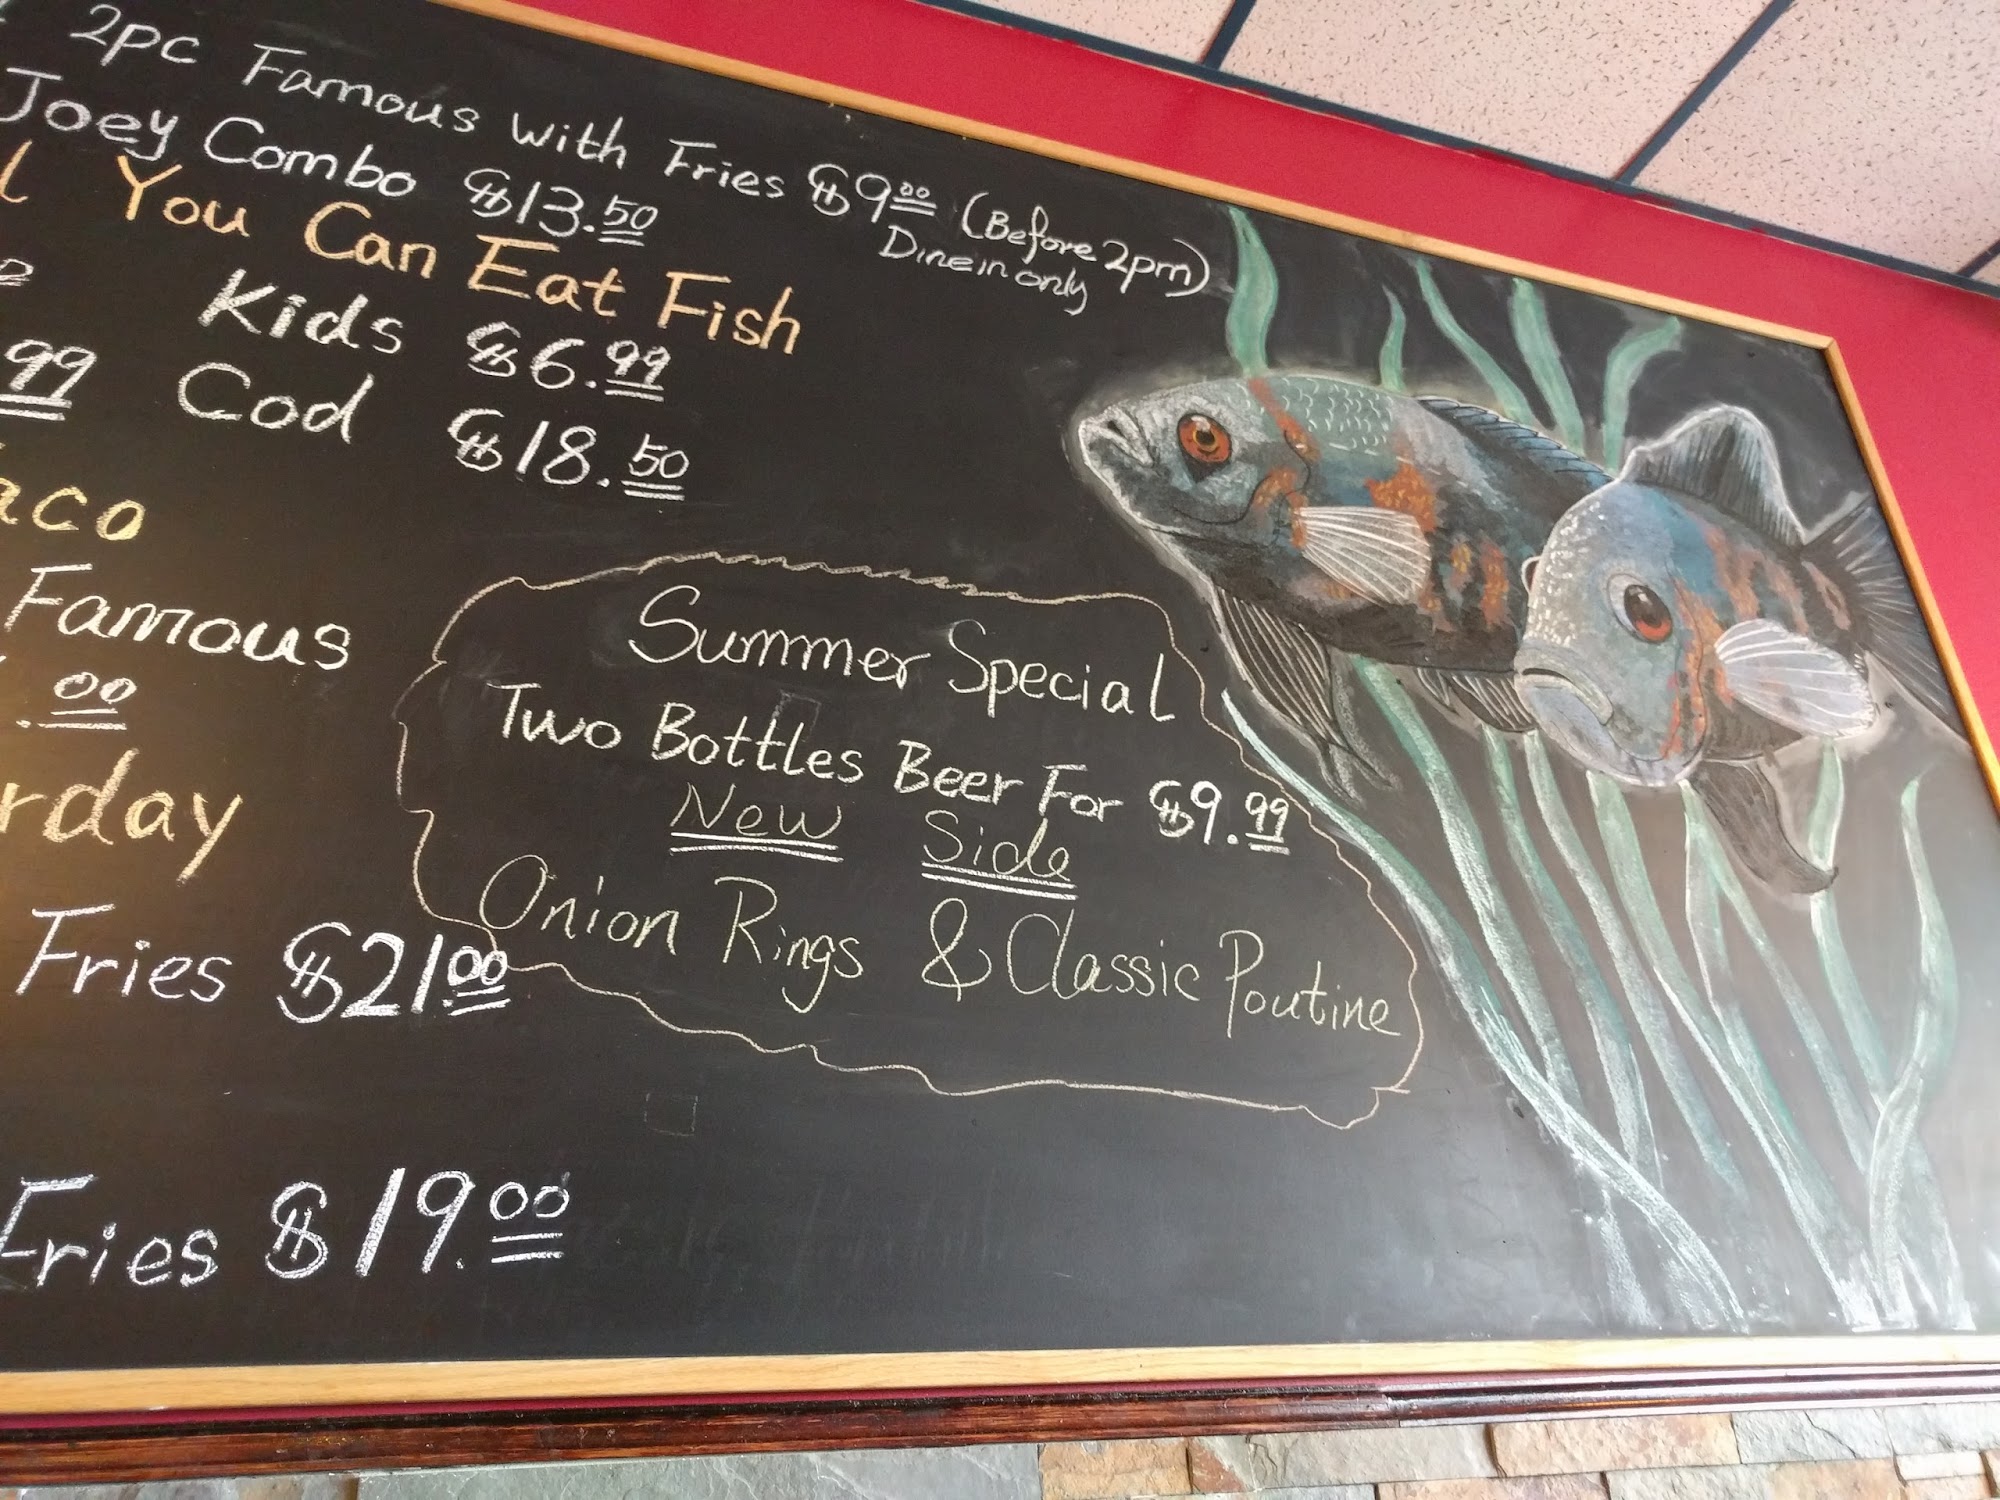 2pc Famous with Fries $9.00 (Before 2pm)
Dine in only
Joey Combo $13.50
You Can Eat Fish
Kids $6.99
99 Cod $18.50
Famous
.00
Fries $21.00
Fries $19.00
Summer Special
Two Bottles Beer For $9.99
New Side
Onion Rings & Classic Poutine